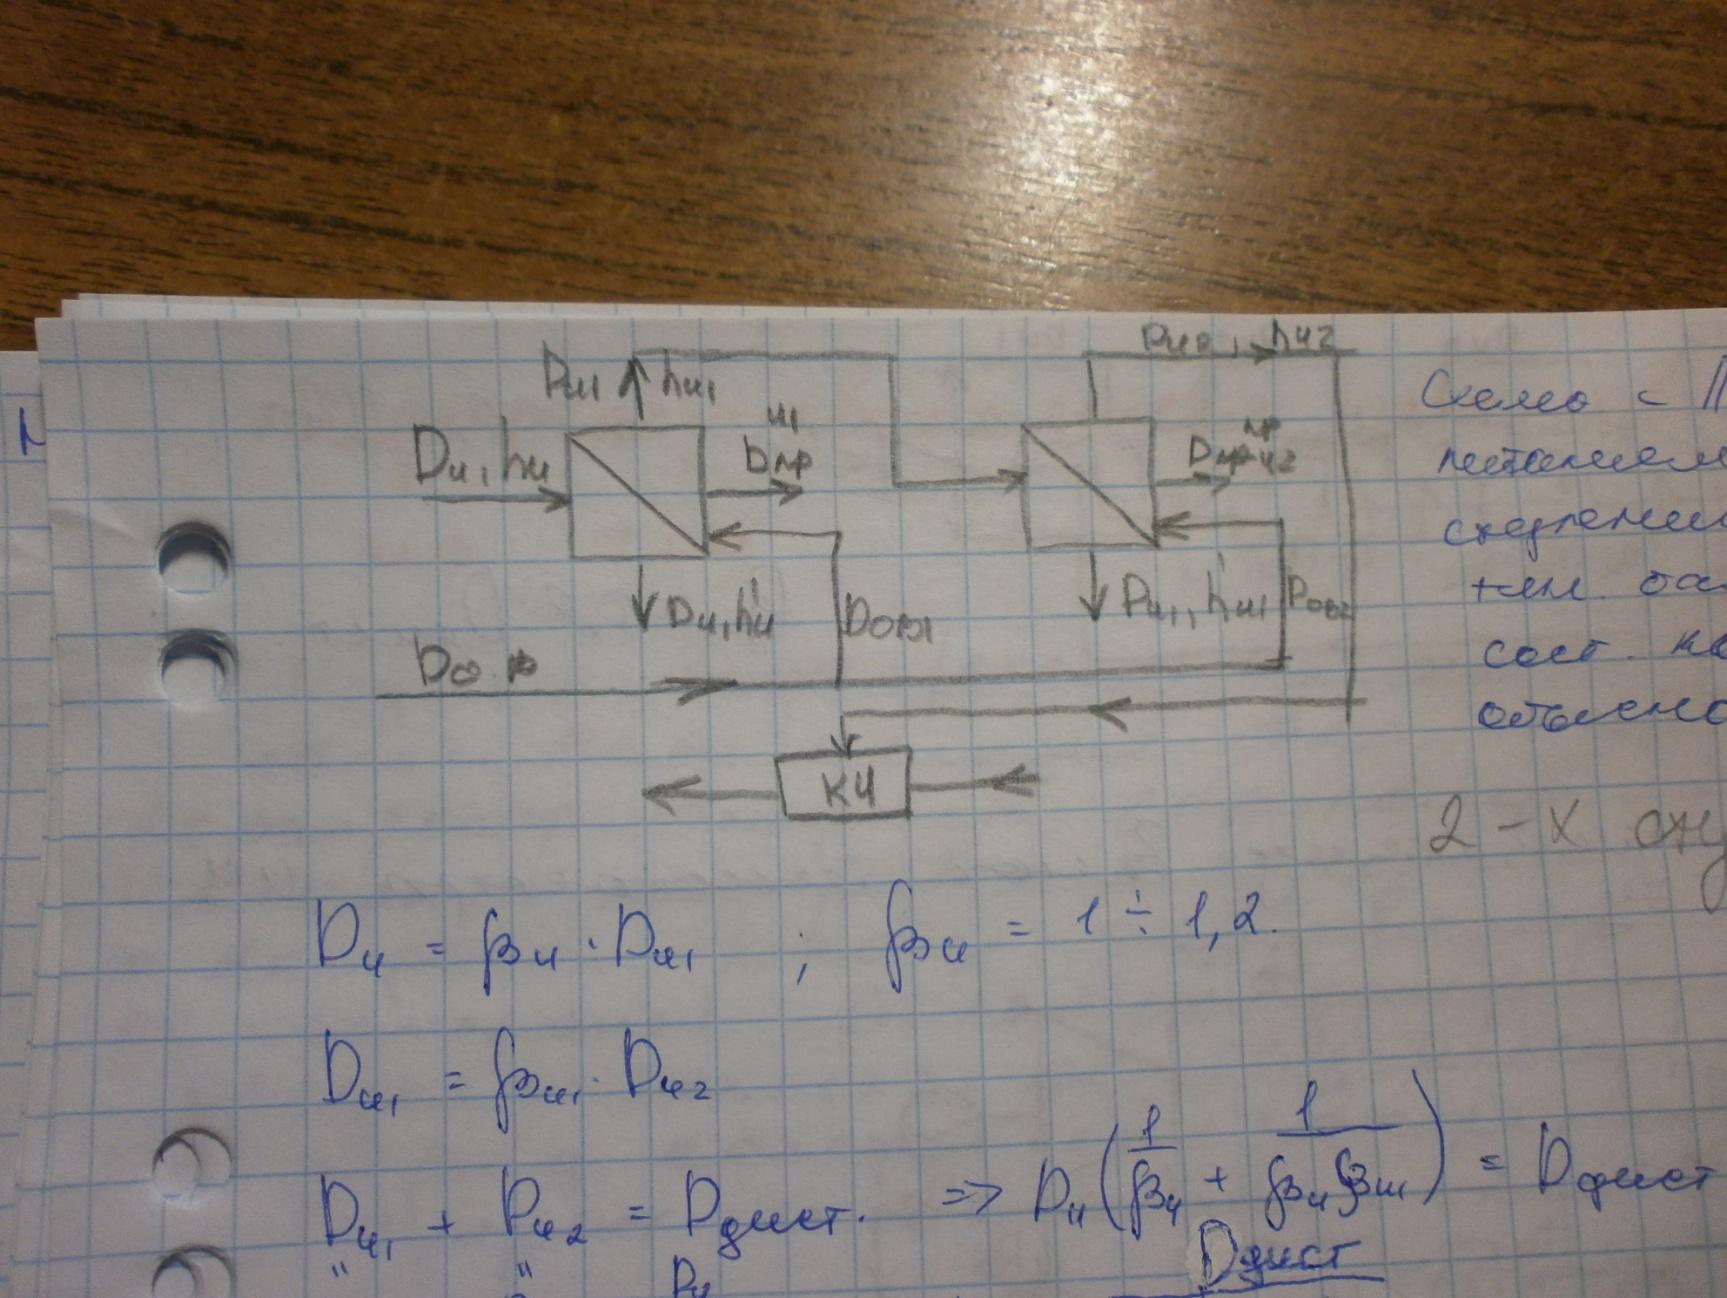 Dи1 hи1
Dи2, hи2
Dи, hи
Dпр и1
Dпр и2
Dи, h'и
Dов1
Dи1, h'и1
Dов2
КИ
Схема с
питанием
2-х
Dи = βи · Dи1 ; βи = 1 ÷ 1,2.
Dи1 = βи1 · Dи2
Dи1 + Dи2 = Dдист. => Dи (1/βи + 1/βиβи1) = Dдист
" " Dи Dдист